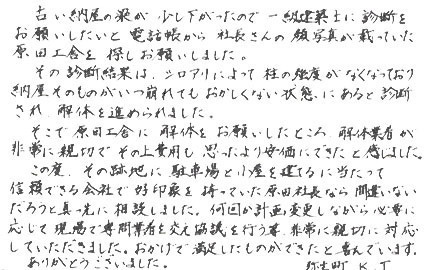 古い納屋の梁が少し下がったので一級建築士に診断を
お願いしたいと電話帳から社長さんの顔写真が載っていた
原田工舎を探しお願いしました。
その診断結果は、シロアリによって柱の強度がなくなっており
納屋そのものがいつ崩れてもおかしくない状態にあると診断
され、解体を進められました。
そこで原田工舎に解体をお願いしたところ、解体業者が
非常に親切でその上費用も思ったより安価にできたと感じました。
この度、その跡地に駐車場と小屋を建てるに当たって
信頼できる会社で好印象を持っていた原田社長なら間違いない
だろうと真っ先に相談しました。何回か計画変更しながら必要に
応じて現場で専門業者を交え協議を行う等、非常に親切に対応
していただきました。おかげで満足したものができたと喜んでいます。
ありがとうございました。 弥生町 K.T